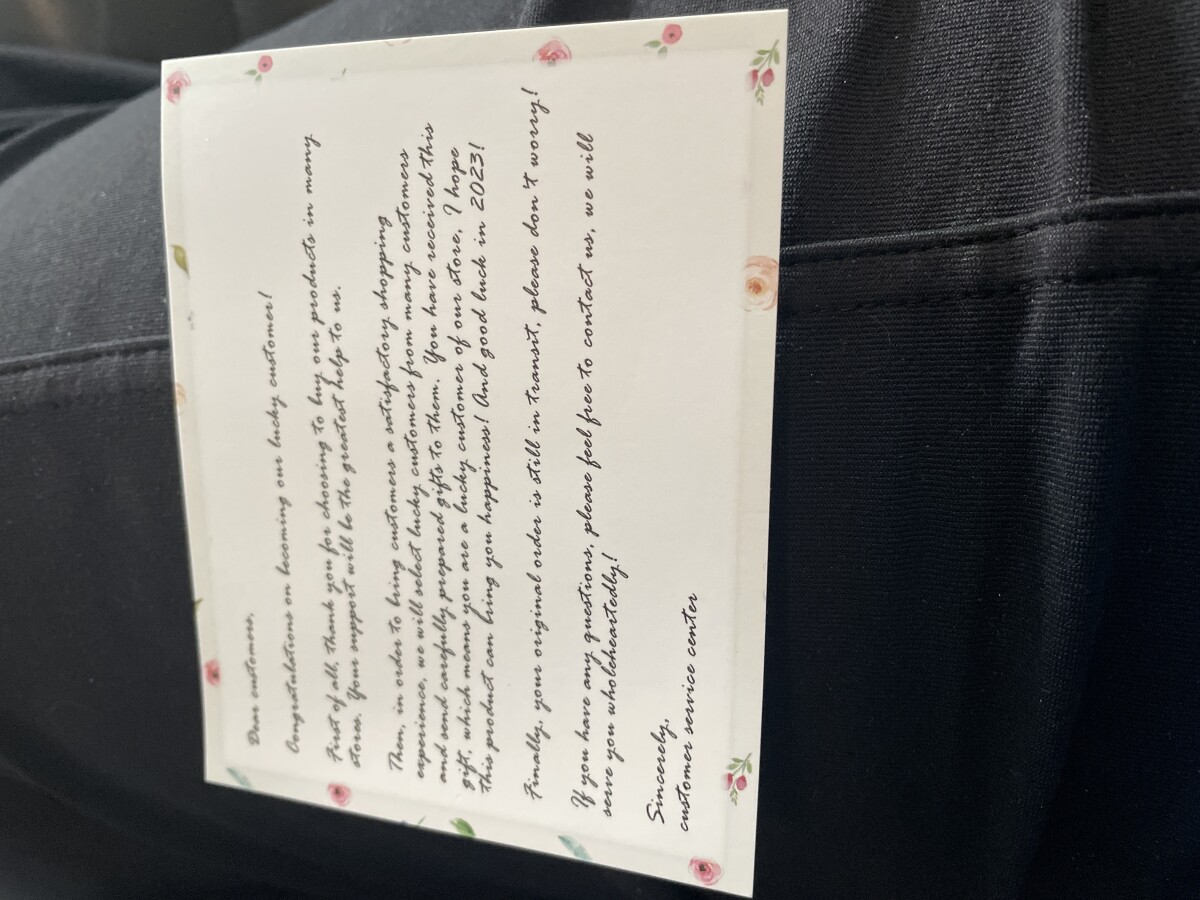 Dear customers,
Congratulations on becoming our lucky customer!
First of all, thank you for choosing to buy our products in many
stores. Your support will be the greatest help to us.
Then, in order to bring customers a satisfactory shopping
experience, we will select lucky customers from many customers
and send carefully prepared gifts to them. You have received this
gift, which means you are a lucky customer of our store, I hope
this product can bring you happiness! And good luck in 2023!
Finally, your original order is still in transit, please don't worry!
If you have any questions, please feel free to contact us, we will
serve you wholeheartedly!
Sincerely,
customer service center